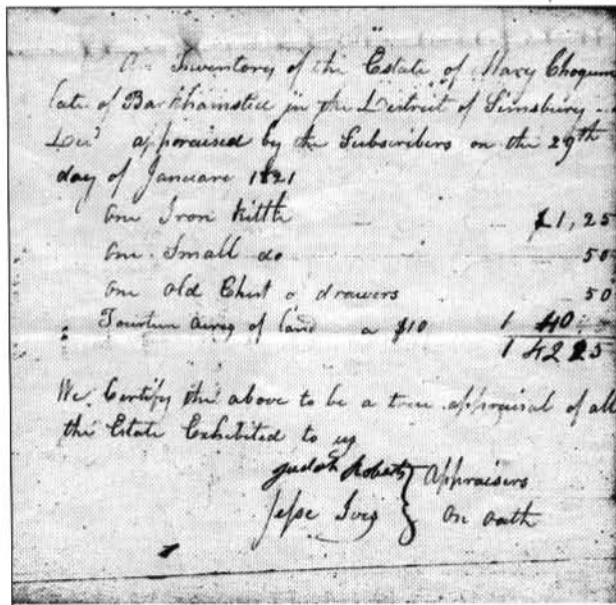 An Inventory of the Estate of Mary Choqum
late of Barkhamsted in the District of Simsbury
Decd appraised by the Subscribers on the 29th
day of Januare 1821
One Iron Kittle $1,25
one Small do 50
one old Chest o drawers 50
Fourteen acres of land a $10 1 40
1 42 25
We Certify the above to be a true appraisal of all
the Estate Exhibited to us
Judah Roberts } Appraisers
Jesse Ives } on oath